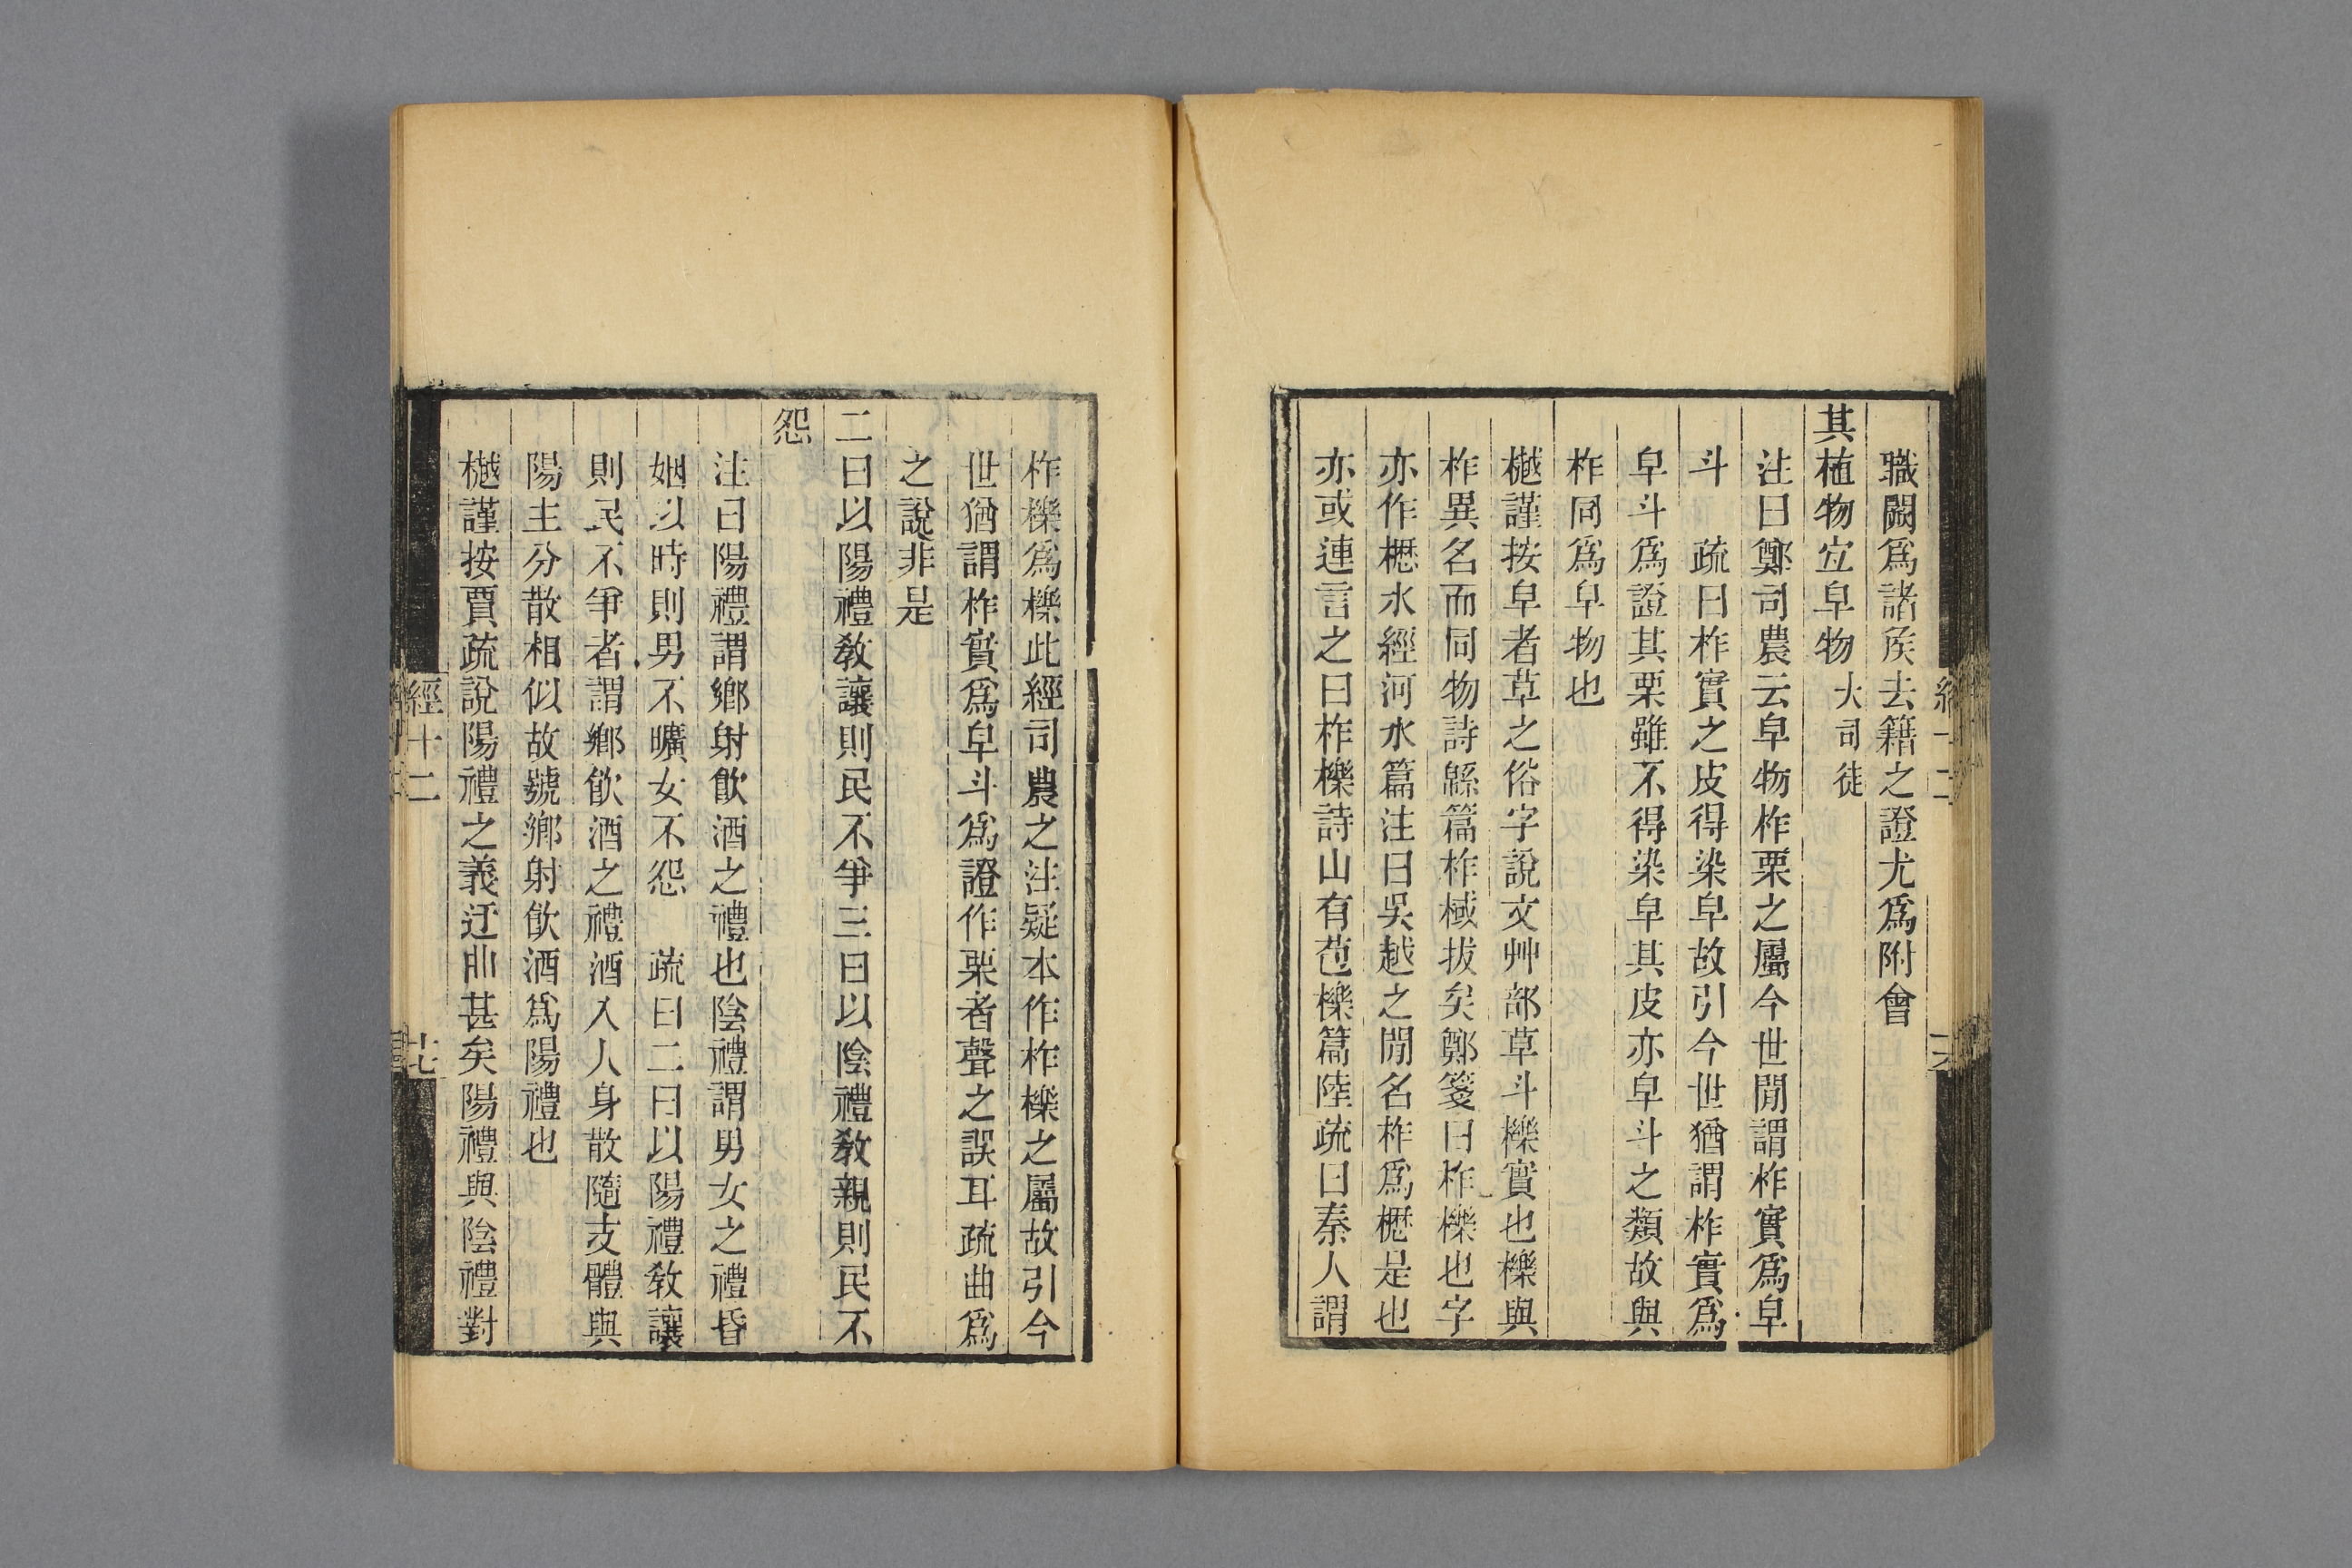 職闕爲諸矦去籍之證尤爲附會
其植物宐皁物大司徒
注曰鄭司農云皁物柞栗之屬今世閒謂柞實爲皁
斗　疏曰柞實之皮得染皁故引今世猶謂柞實爲
皁斗爲證其栗雖不得染皁其皮亦皁斗之類故與
柞同爲皁物也
樾謹按皁者草之俗字說文艸部草斗櫟實也櫟與
柞異名而同物詩緜篇柞棫拔矣鄭箋曰柞櫟也字
亦作櫪水經河水篇注曰吳越之閒名柞爲櫪是也
亦或連言之曰柞櫟詩山有苞櫟篇陸疏曰秦人謂
柞櫟爲櫟此經司農之注疑本作柞櫟之屬故引今
世猶謂柞實爲皁斗爲證作栗者聲之誤耳疏曲爲
之說非是
二曰以陽禮敎讓則民不爭三曰以陰禮敎親則民不
怨
注曰陽禮謂鄉射飮酒之禮也陰禮謂男女之禮昏
姻以時則男不曠女不怨　疏曰二曰以陽禮敎讓
則民不爭者謂鄉飮酒之禮酒入人身散隨支體與
陽主分散相似故號鄉射飮酒爲陽禮也
樾謹按賈疏說陽禮之義迂曲甚矣陽禮與陰禮對
經十二
十七